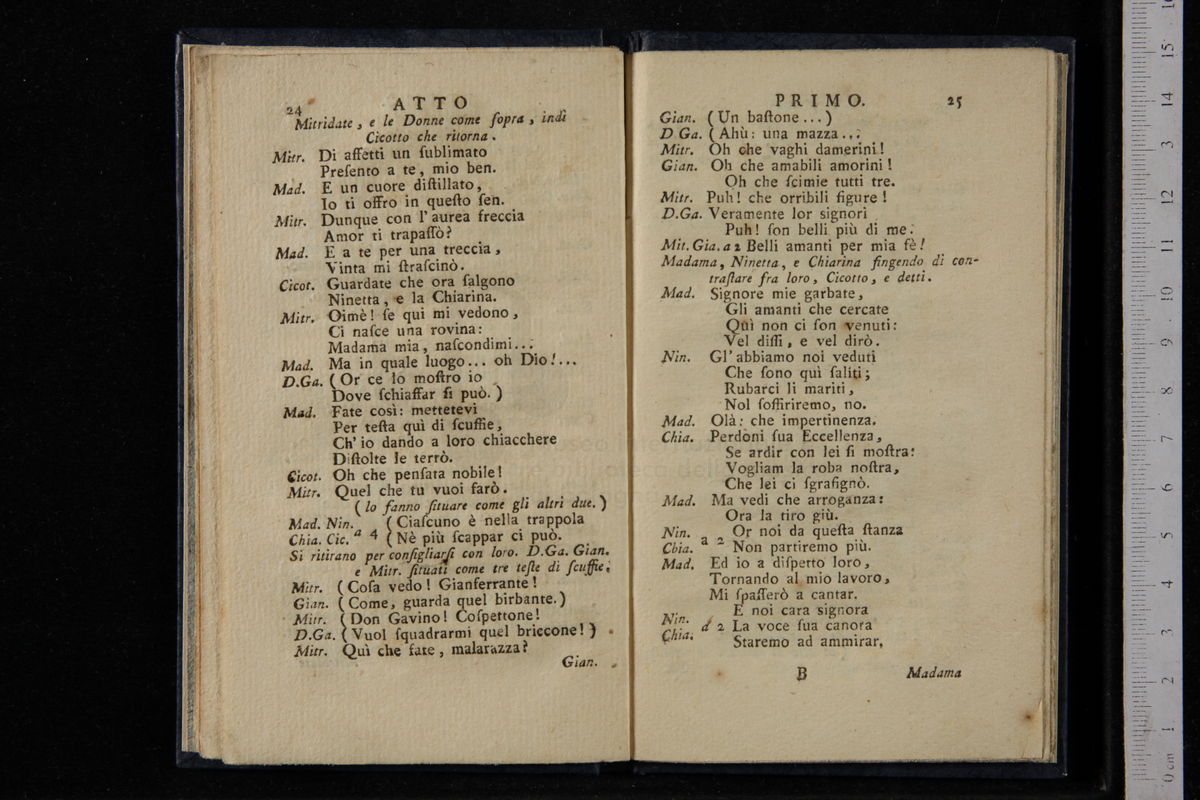 24 ATTO
Mitridate, e le Donne come ſopra, indi
Cicotto che ritorna.
Mitr. Di affetti un ſublimato
Preſento a te, mio ben.
Mad. E un cuore diſtillato,
Io ti offro in queſto ſen.
Mitr. Dunque con l'aurea freccia
Amor ti trapaſsò?
Mad. E a te per una treccia,
Vinta mi ſtraſcinò.
Cicot. Guardate che ora ſalgono
Ninetta, e la Chiarina.
Mitr. Oimè! ſe qui mi vedono,
Ci naſce una rovina:
Madama mia, naſcondimi...
Mad. Ma in quale luogo... oh Dio!...
D.Ga. (Or ce lo moſtro io
Dove ſchiaffar ſi può.)
Mad. Fate così: mettetevi
Per teſta quì di ſcuffie,
Ch'io dando a loro chiacchere
Diſtolte le terrò.
Cicot. Oh che penſata nobile!
Mitr. Quel che tu vuoi farò.
(lo fanno ſituare come gli altri due.)
Mad. Nin. (Ciaſcuno è nella trappola
Chia. Cic. a 4 (Nè più ſcappar ci può.
Si ritirano per conſigliarſi con loro. D.Ga. Gian.
e Mitr. ſituati come tre teſte di ſcuffie.
Mitr. (Coſa vedo! Gianferrante!
Gian. (Come, guarda quel birbante.)
Mitr. (Don Gavino! Coſpettone!
D.Ga. (Vuol ſquadrarmi quel briccone!)
Mitr. Quì che fate, malarazza?
Gian.
PRIMO. 25
Gian. (Un baſtone...)
D Ga. (Ahù: una mazza...
Mitr. Oh che vaghi damerini!
Gian. Oh che amabili amorini!
Oh che ſcimie tutti tre.
Mitr. Puh! che orribili figure!
D.Ga. Veramente lor signori
Puh! ſon belli più di me.
Mit. Gia. a 2 Belli amanti per mia fè!
Madama, Ninetta, e Chiarina fingendo di con-
traſtare fra loro, Cicotto, e detti.
Mad. Signore mie garbate,
Gli amanti che cercate
Quì non ci ſon venuti:
Vel diſſi, e vel dirò.
Nin. Gl'abbiamo noi veduti
Che ſono quì ſaliti;
Rubarci li mariti,
Nol ſoffriremo, no.
Mad. Olà: che impertinenza.
Chia. Perdoni ſua Eccellenza,
Se ardir con lei ſi moſtra:
Vogliam la roba noſtra,
Che lei ci ſgrafignò.
Mad. Ma vedi che arroganza:
Ora la tiro giù.
Nin. Or noi da queſta ſtanza
Chia. a 2 Non partiremo più.
Mad. Ed io a diſpetto loro,
Tornando al mio lavoro,
Mi ſpaſſerò a cantar.
E noi cara signora
Nin. a 2 La voce ſua canora
Chia. Staremo ad ammirar.
B Madama
0 cm 1 2 3 4 5 6 7 8 9 10 11 12 13 14 15